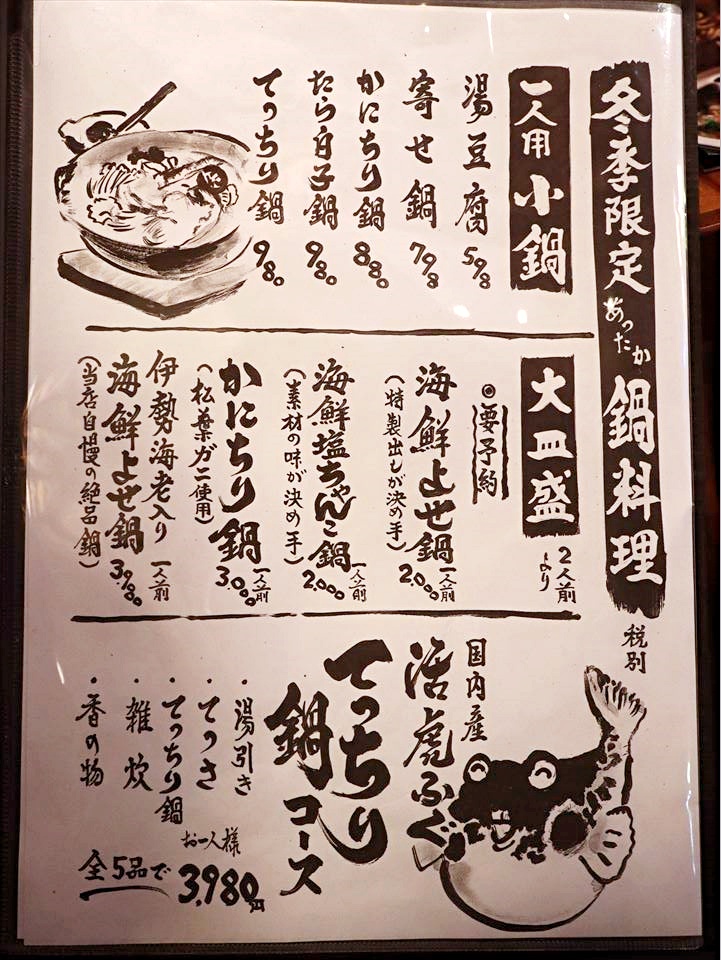 冬季限定 あったか 鍋料理
税別
一人用 小鍋
湯豆腐 598
寄せ鍋 798
かにちり鍋 880
たら白子鍋 980
てっちり鍋 980
大皿盛 2人前より
◎要予約
海鮮よせ鍋 一人前 2,000
（特製出しが決め手）
海鮮塩ちゃんこ鍋 一人前 2,000
（素材の味が決め手）
かにちり鍋 一人前 3,000
（松葉ガニ使用）
伊勢海老入り
海鮮よせ鍋 一人前 3,980
（当店自慢の絶品鍋）
国内産
活虎ふぐ
てっちり
鍋コース
・湯引き
・てっさ
・てっちり鍋
・雑炊
・香の物
お一人様
全5品で 3,980円